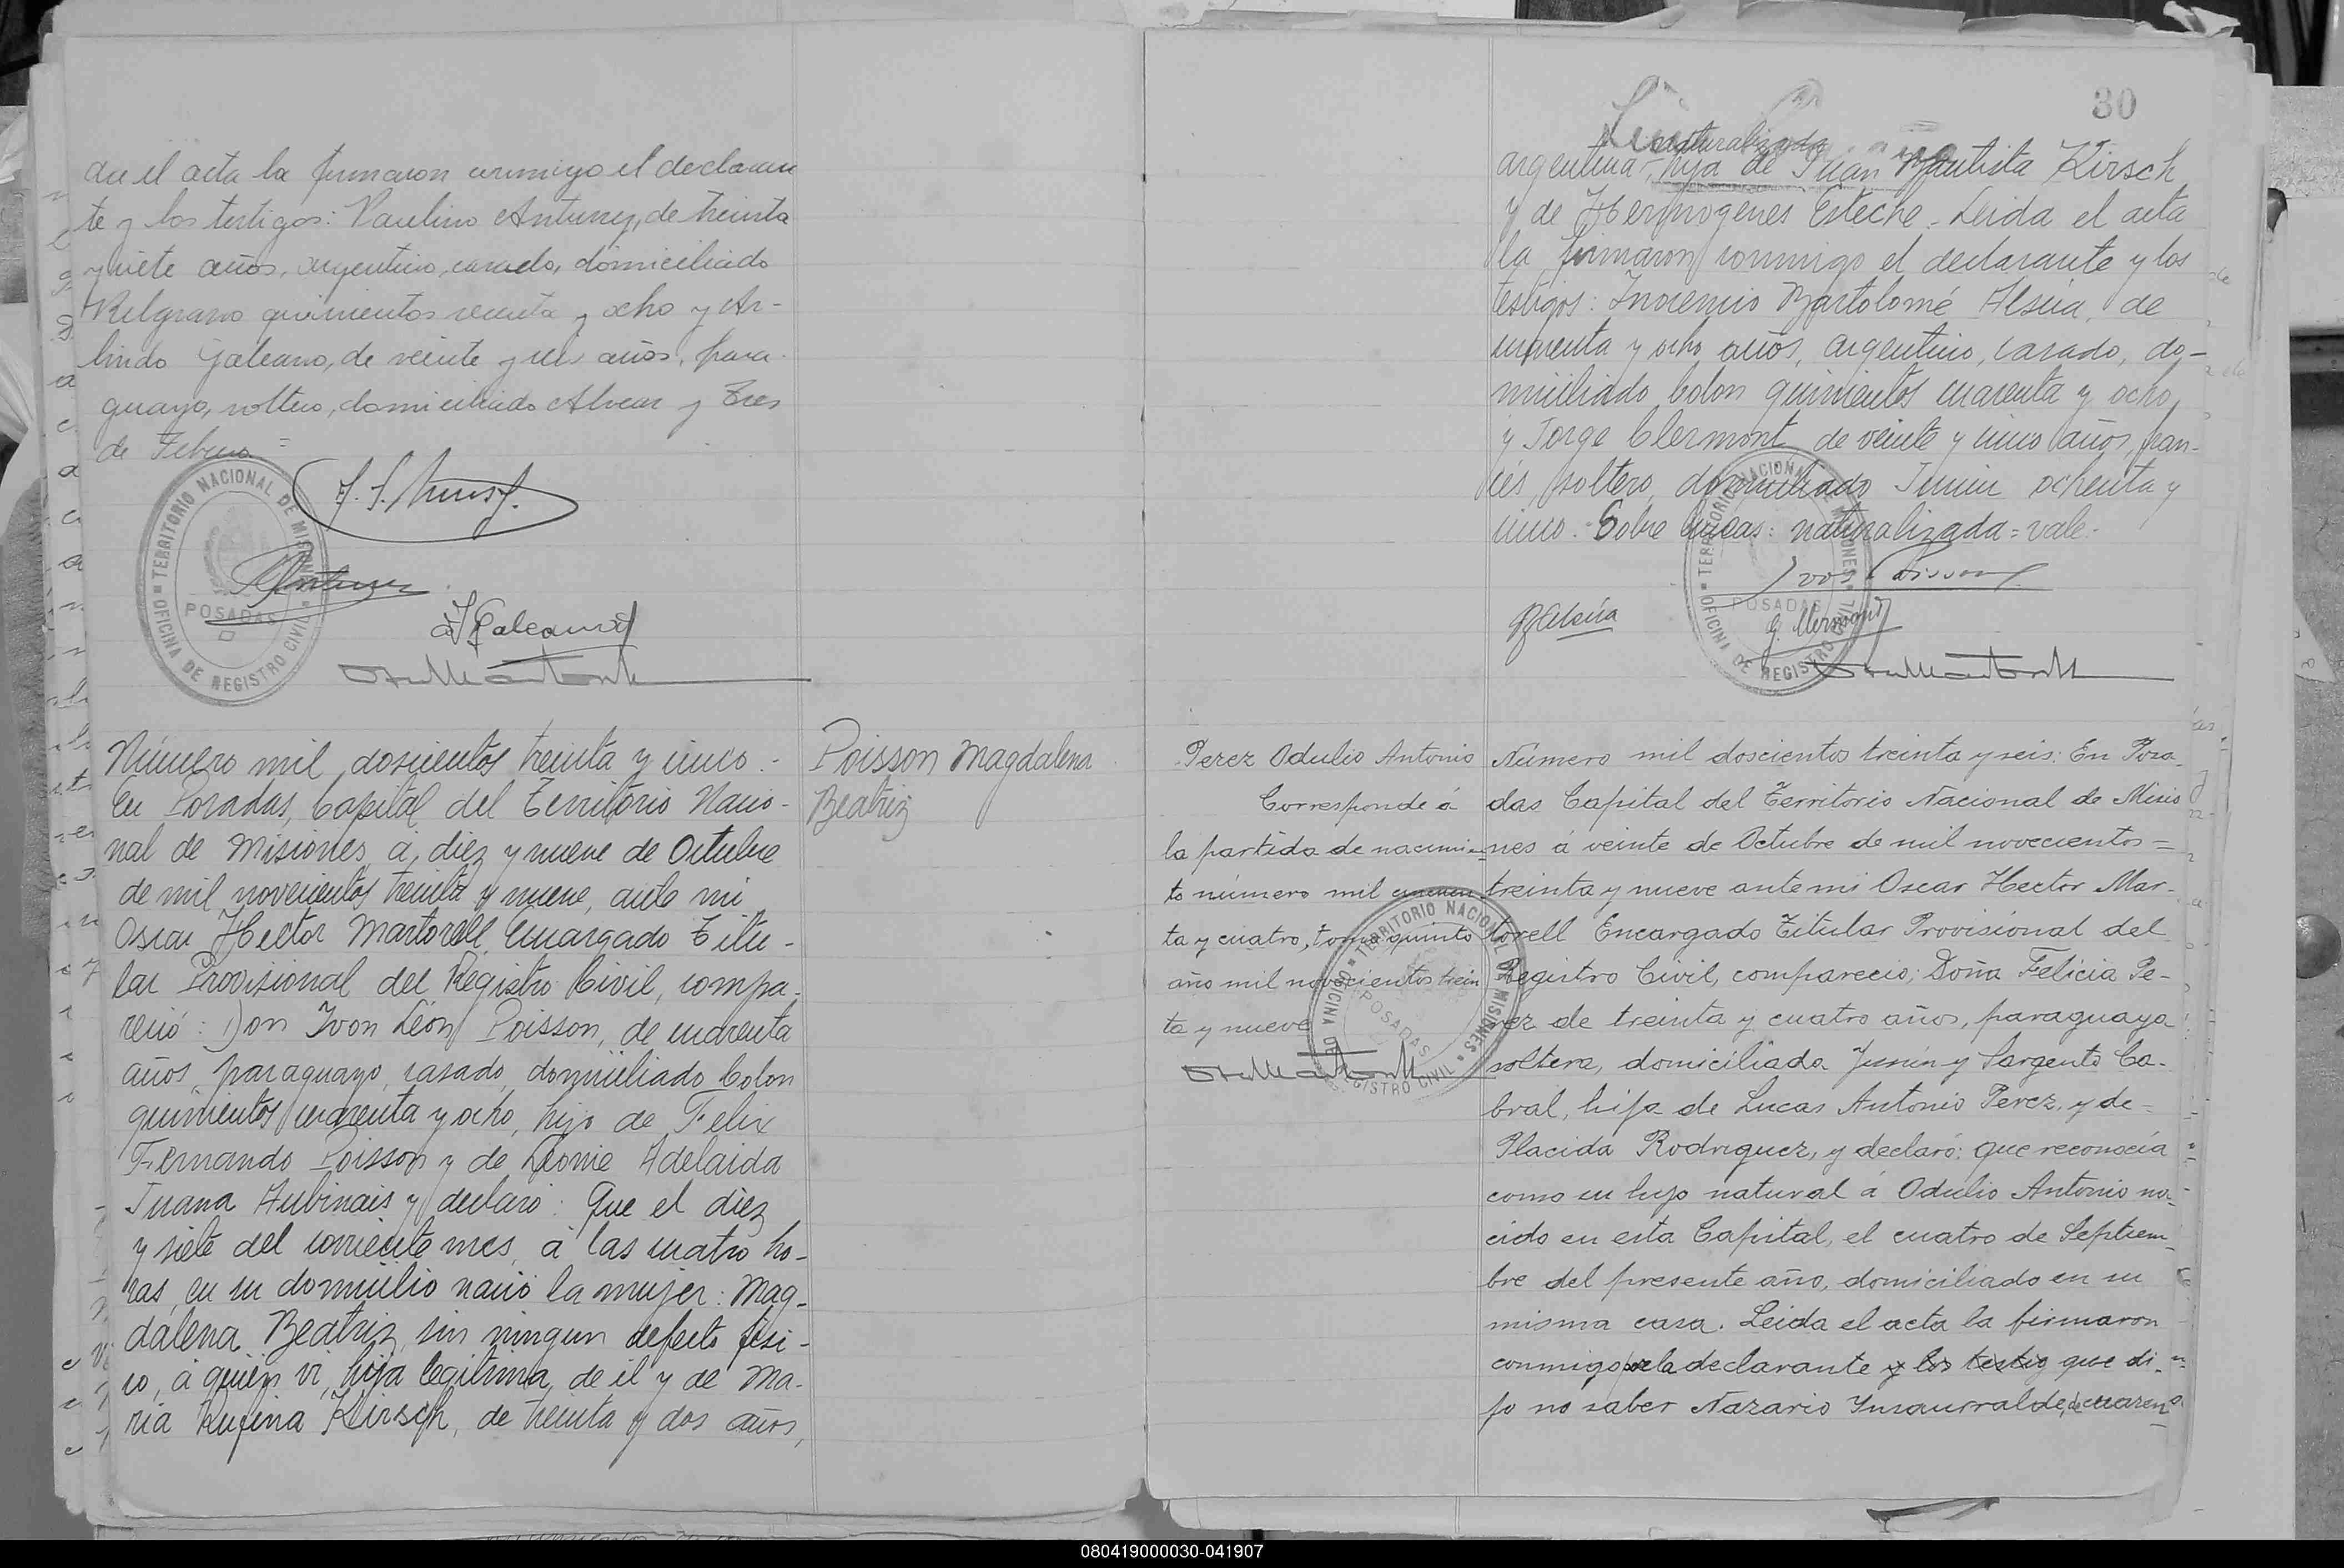 da el acta la firmaron conmigo el declaran
te y los testigos: Paulino Antunez, de treinta
y siete años, argentino, casado, domiciliado
Belgrano quinientos sesenta y ocho y Ar-
lindo Galeano, de veinte y seis años, para-
guayo, soltero, domiciliado Alvear y Tres
de Febrero =
TERRITORIO NACIONAL DE MISIONES
OFICINA DE REGISTRO CIVIL
POSADAS
Número mil doscientos treinta y cinco.-
En Posadas, Capital del Territorio Nacio-
nal de Misiones, á, diez y nueve de Octubre
de mil novecientos treinta y nueve, ante mi
Oscar Hector Martorell, Encargado Titu-
lar Provisional del Registro Civil, compa-
reció: Don Ivon León Poisson, de cuarenta
años, paraguayo, casado, domiciliado Colon
quinientos cuarenta y ocho, hijo de Felix
Fernando Poisson y de Leonie Adelaida
Juana Aubinais y declaró: Que el diez
y siete del corriente mes, á las cuatro ho-
ras, en su domicilio nació la mujer: Mag-
dalena Beatriz, sin ningun defecto fisi-
co, á quien vi, hija legitima, de él y de Ma-
ria Rufina Kirsch, de treinta y dos años,
Poisson Magdalena
Beatriz
30
naturalizada
argentina, hija de Juan Bautista Kirsch
y de Hermogenes Esteche. Leida el acta
la firmaron conmigo el declarante y los
testigos: Inocencio Bartolomé Alsúa, de
cincuenta y ocho años, argentino, casado, do-
miciliado Colon quinientos cuarenta y ocho,
y Jorge Clermont, de veinte y cinco años, fran-
cés, soltero, domiciliado Junin ochenta y
cinco. Sobre lineas: naturalizada = vale.-
Ivon Poisson
BAlsúa
G. Clermont
TERRITORIO NACIONAL DE MISIONES
OFICINA DE REGISTRO CIVIL
POSADAS
Perez Odulio Antonio
Corresponde á
la partida de nacimien
to número mil cincuen
ta y cuatro, tomo quinto
año mil novecientos trein
ta y nueve
TERRITORIO NACIONAL DE MISIONES
OFICINA DE REGISTRO CIVIL
POSADAS
Número mil doscientos treinta y seis: En Posa-
das Capital del Territorio Nacional de Misio
nes á veinte de Octubre de mil novecientos =
treinta y nueve ante mi Oscar Hector Mar-
torell Encargado Titular Provisional del
Registro Civil, compareció; Doña Felicia Pe-
rez de treinta y cuatro años, paraguaya
soltera, domiciliada Junin y Sargento Ca-
bral, hija de Lucas Antonio Perez, y de-
Placida Rodriguez, y declaró: que reconocía
como su hijo natural á Odulio Antonio na-
cido en esta Capital, el cuatro de Septiem-
bre del presente año, domiciliado en su
misma casa. Leida el acta la firmaron
conmigo por la declarante y los testig que di-
jo no saber Nazario Ynsaurralde, de cuaren
080419000030-041907